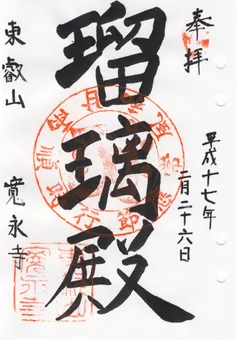 奉拝
平成十七年
二月二十六日
瑠璃殿
東叡山
寛永寺